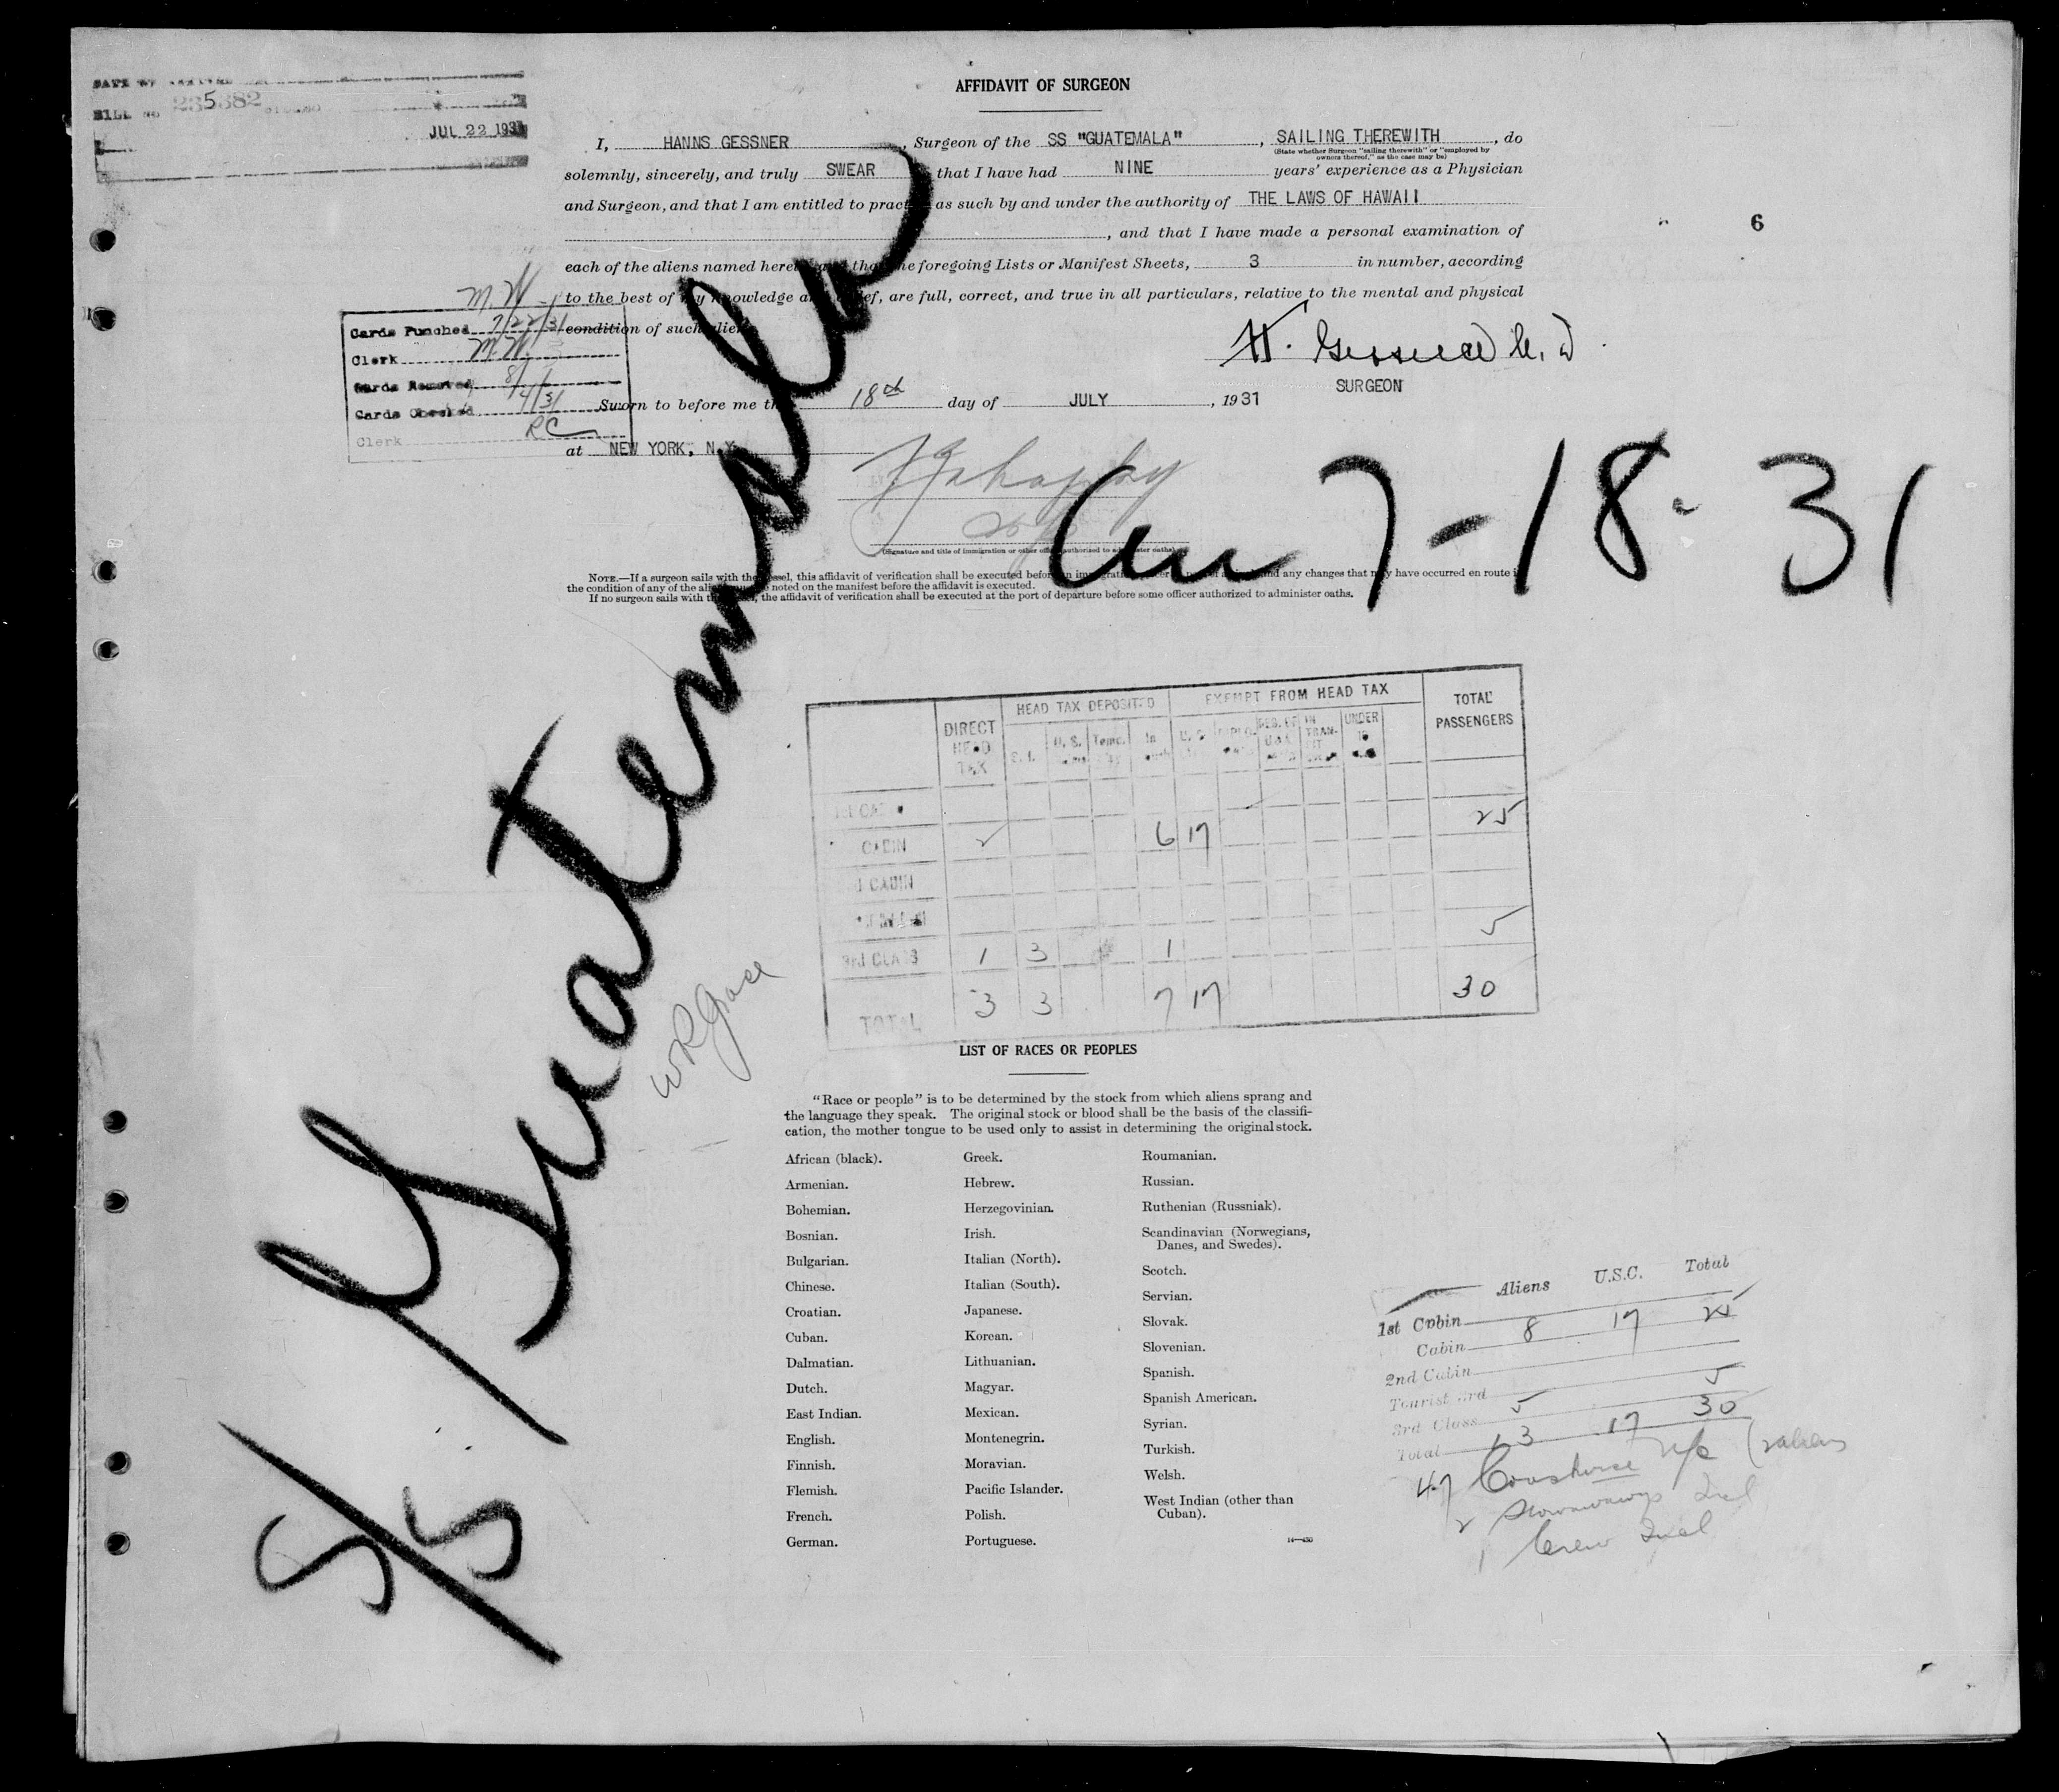 AFFIDAVIT OF SURGEON
BILL No 235382
JUL 22 1931
I, HANNS GESSNER, Surgeon of the SS "GUATEMALA", SAILING THEREWITH, do
(State whether Surgeon "sailing therewith" or "employed by
owners thereof," as the case may be)
solemnly, sincerely, and truly SWEAR that I have had NINE years' experience as a Physician
and Surgeon, and that I am entitled to practice as such by and under the authority of THE LAWS OF HAWAII
, and that I have made a personal examination of
6
each of the aliens named herein and that the foregoing Lists or Manifest Sheets, 3 in number, according
to the best of my knowledge and belief, are full, correct, and true in all particulars, relative to the mental and physical
condition of such aliens.
M.W.
Cards Punched 7/22/31
Clerk M.W.
Cards Removed
Cards Checked 8/4/31
Clerk RC
H. Gessner M.D.
SURGEON
Sworn to before me this 18th day of JULY, 1931
at NEW YORK, N.Y.
(Signature and title of immigration or other officer authorized to administer oaths)
7-18-31
NOTE.—If a surgeon sails with the vessel, this affidavit of verification shall be executed before an immigration officer and any changes that may have occurred en route in
the condition of any of the aliens noted on the manifest before the affidavit is executed.
If no surgeon sails with the vessel, the affidavit of verification shall be executed at the port of departure before some officer authorized to administer oaths.
S/S Guatemala
W R Grace
DIRECT HEAD TAX HEAD TAX DEPOSITED EXEMPT FROM HEAD TAX TOTAL PASSENGERS
S.I. U.S. Temp. In U.S. IN TRANSIT UNDER 16
25
CABIN 2 6 17
2nd CABIN
5
3rd CLASS 1 3 1
TOTAL 3 3 7 17 30
LIST OF RACES OR PEOPLES
"Race or people" is to be determined by the stock from which aliens sprang and
the language they speak. The original stock or blood shall be the basis of the classifi-
cation, the mother tongue to be used only to assist in determining the original stock.
African (black).
Armenian.
Bohemian.
Bosnian.
Bulgarian.
Chinese.
Croatian.
Cuban.
Dalmatian.
Dutch.
East Indian.
English.
Finnish.
Flemish.
French.
German.
Greek.
Hebrew.
Herzegovinian.
Irish.
Italian (North).
Italian (South).
Japanese.
Korean.
Lithuanian.
Magyar.
Mexican.
Montenegrin.
Moravian.
Pacific Islander.
Polish.
Portuguese.
Roumanian.
Russian.
Ruthenian (Russniak).
Scandinavian (Norwegians,
Danes, and Swedes).
Scotch.
Servian.
Slovak.
Slovenian.
Spanish.
Spanish American.
Syrian.
Turkish.
Welsh.
West Indian (other than
Cuban).
14—430
Aliens U.S.C. Total
1st Cabin 8 17 25
Cabin
2nd Cabin
Tourist 3rd 5
3rd Class 5 30
Total 13 17
47 Coastwise
2 Stowaways
1 Crew